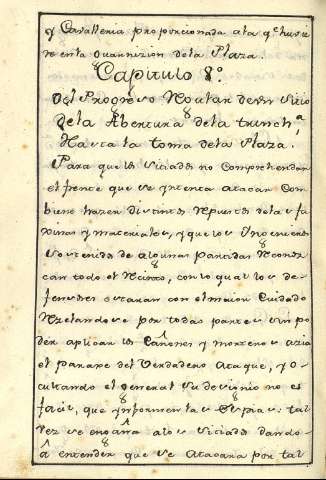 y Cavalleria proporcionada ala qe huvie
re enla Guarnizion dela Plaza.
Capitulo 8º.
Del Progreso Regular de un Sitio
de la Abertura de la trinchª,
Hasta la toma dela Plaza.
Para que los Sitiados no comprehendan
el frente que se yntenta atacar Com
biene hazer distintos Repuestos de las fa
xinas y materiales, y que los Yngenieros
Sostenidos de algunas partidas Reconoz
can todo el Recinto, con lo qual los de
fensores estaran con el maior Cuidado
Rezelandose por todas partes sin po
der aplicar los Cañones y morteros azia
el parage del Verdadero Ataque, y o
cultando el General su designio no es
facil, que ynformen las Espias tal
vez se engaña a los Sitiados dando
á entender que se Atacara por tal